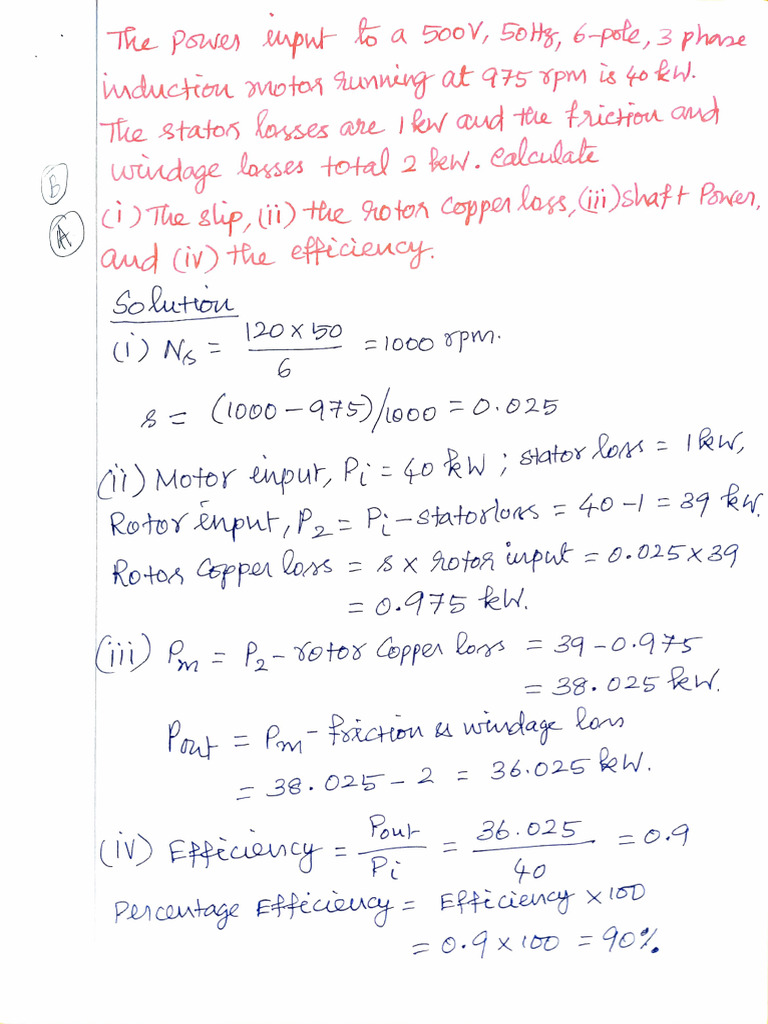 The Power input to a 500V, 50Hz, 6-pole, 3 phase
induction motor running at 975 rpm is 40 kW.
The stator losses are 1 kW and the friction and
windage losses total 2 kW. Calculate
B
(i) The slip, (ii) the rotor copper loss, (iii) shaft Power,
A
and (iv) the efficiency.
Solution
(i) Ns = 120 × 50 / 6 = 1000 rpm.
s = (1000 – 975)/1000 = 0.025
(ii) Motor input, Pi = 40 kW ; stator loss = 1 kW,
Rotor input, P2 = Pi – stator loss = 40 – 1 = 39 kW.
Rotor Copper loss = s × rotor input = 0.025 × 39
= 0.975 kW.
(iii) Pm = P2 – rotor Copper loss = 39 – 0.975
= 38.025 kW.
Pout = Pm – friction & windage loss
= 38.025 – 2 = 36.025 kW.
(iv) Efficiency = Pout / Pi = 36.025 / 40 = 0.9
Percentage Efficiency = Efficiency × 100
= 0.9 × 100 = 90%